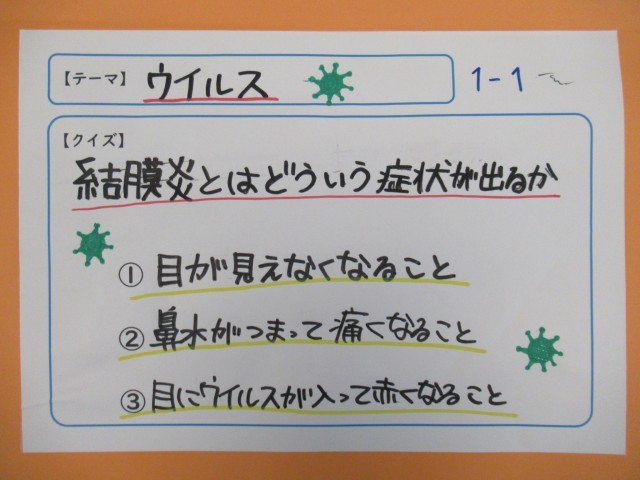 【テーマ】 ウイルス
1-1
【クイズ】
結膜炎とはどういう症状が出るか
① 目が見えなくなること
② 鼻水がつまって痛くなること
③ 目にウイルスが入って赤くなること